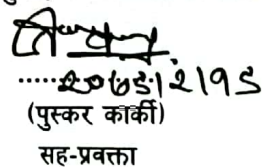 २०७९।२।१९
(पुस्कर कार्की)
सह-प्रवक्ता